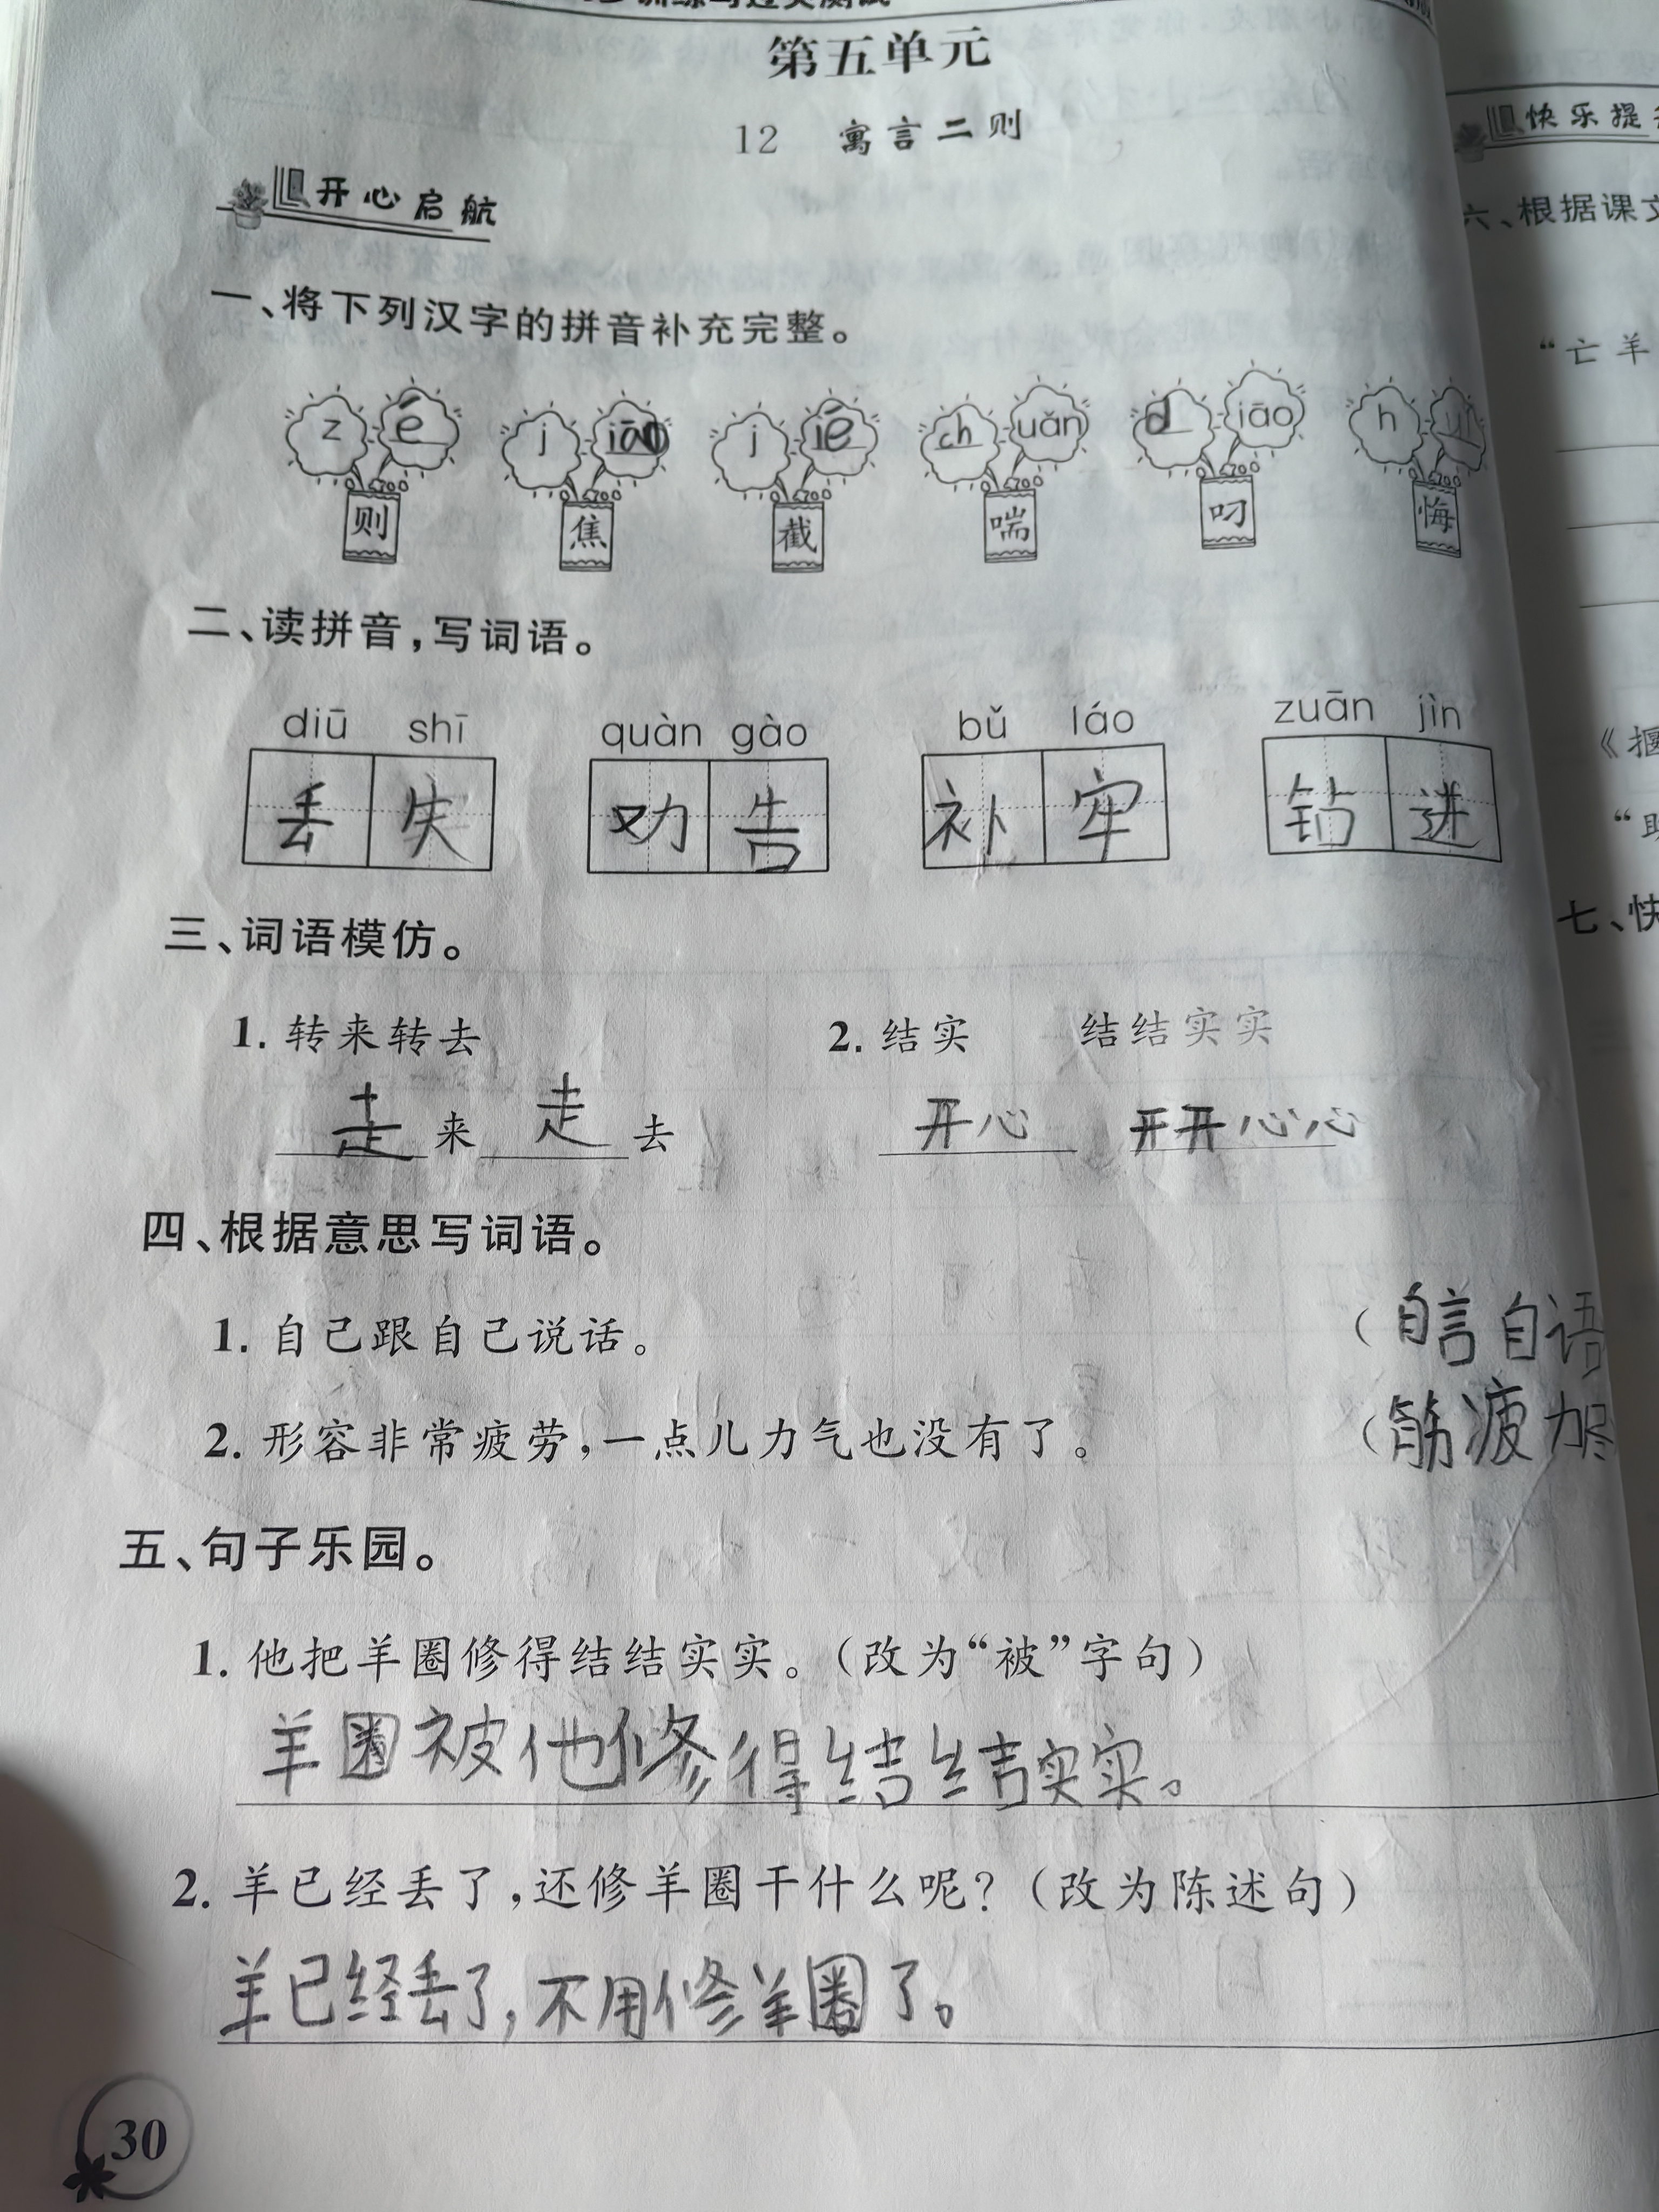 第五单元
12 寓言二则
开心启航
一、将下列汉字的拼音补充完整。
z é j iāo j ié ch uǎn d iāo h uǐ
则 焦 截 喘 叼 悔
二、读拼音,写词语。
diū shī quàn gào bǔ láo zuān jìn
丢失 劝告 补牢 钻进
三、词语模仿。
1. 转来转去 2. 结实 结结实实
走来走去 开心 开开心心
四、根据意思写词语。
1. 自己跟自己说话。 (自言自语
2. 形容非常疲劳,一点儿力气也没有了。 (筋疲力尽
五、句子乐园。
1. 他把羊圈修得结结实实。(改为“被”字句)
羊圈被他修得结结实实。
2. 羊已经丢了,还修羊圈干什么呢?(改为陈述句)
羊已经丢了,不用修羊圈了。
30
快乐提
六、根据课文
“亡羊
《揠
七、快